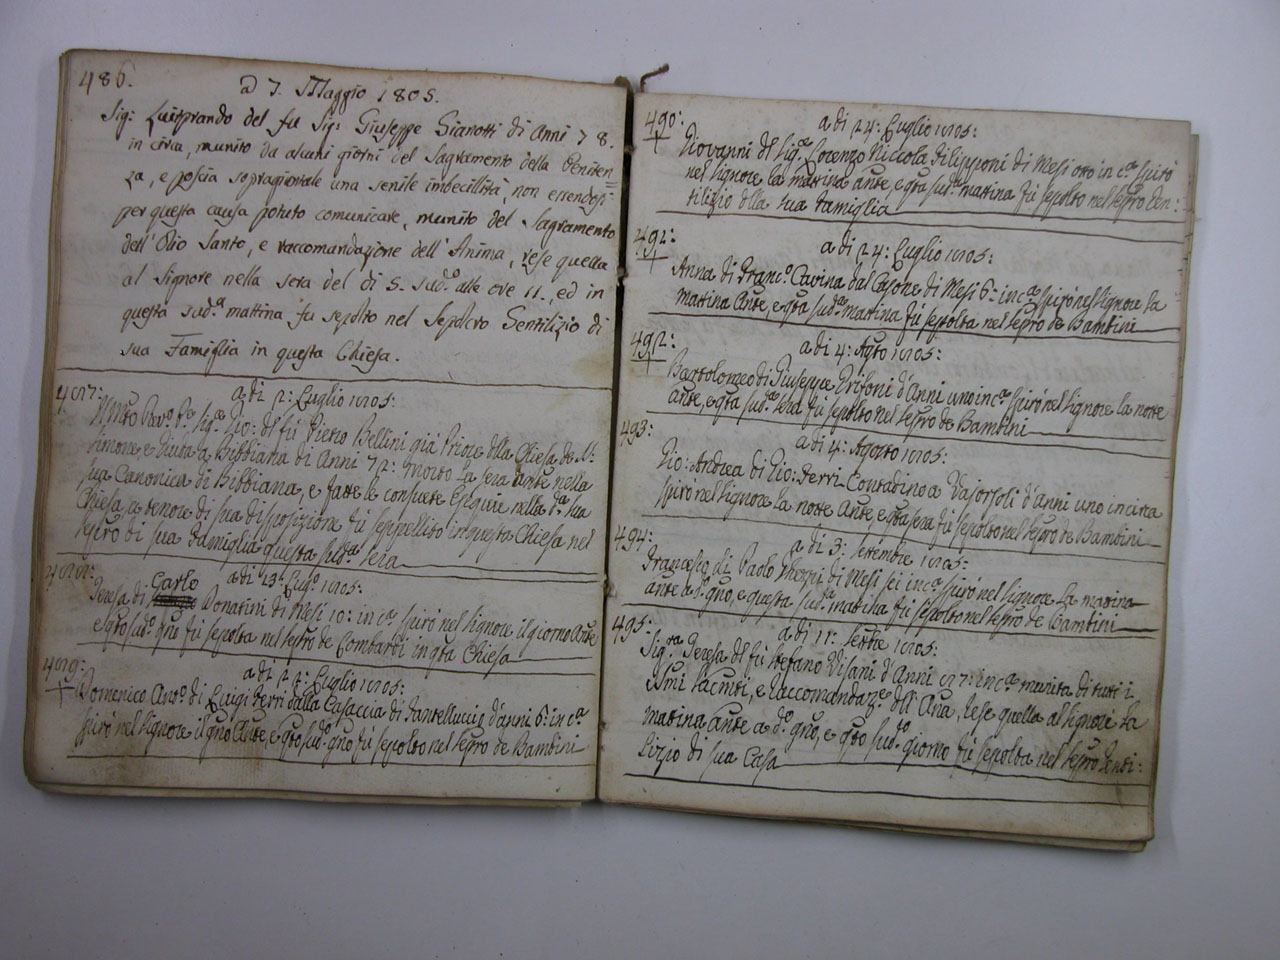 486.
a 7. Maggio 1805.
Sig: Luitprando del fu Sig: Giuseppe Gianotti di Anni 78.
in circa, munito da alcuni giorni del Sagramento della Peniten=
za, e poscia sopragiontale una senile imbecillità, non essendosi
per questa causa potuto comunicare, munito del Sagramento
dell' Olio Santo, e raccomandazione dell' Anima, rese quella
al Signore nella sera del di 5. sud.º alle ore 11., ed in
questa sud.ª mattina fu sepolto nel Sepolcro Gentilizio di
sua Famiglia in questa Chiesa.
487:
a di 2: Luglio 1805:
Sig.ʳ Gio: del fù Pietro Bellini già Priore della Chiesa de S:
Simone e Giuda a Bibbiana di Anni 72: Morto la sera ante nella
sua Canonica di Bibbiana, e fatte le consuete Esequie nella d.ª sua
Chiesa, a tenore di sua disposizione fù seppellito in questa Chiesa nel
sepro di sua Famiglia questa sud.ª sera
488:
a di 13: Lug.º 1805:
Teresa di Carlo Donatini di Mesi 10: in c.ª spirò nel Signore il giorno Ante
e qto sud.º gno fù sepolta nel sepro de Lombardi in qta Chiesa
489:
a di 24: Luglio 1805:
Domenico Ant.º di Luigi Ferri dalla Casaccia di Fantelluccio d'anni 6: in c.ª
spirò nel Signore il gno Ante, e qto sud.º gno fù sepolto nel sepro de Bambini
490:
a di 24: Luglio 1805:
Giovanni del Sig.ʳ Lorenzo Niccola Filipponi di Mesi otto in c.ª spirò
nel Signore la mattina ante, e qta sud.ª mattina fù sepolto nel sepro Gen:
tilizio della sua Famiglia
491:
a di 24: Luglio 1805:
Anna di Franc.º Cavina dal Casone di Mesi 6: in c.ª spirò nel Signore la
mattina Ante, e qta sud.ª mattina fù sepolta nel sepro de Bambini
492:
a di 4: Agto 1805:
Bartolomeo di Giuseppe Grifoni d'Anni uno in c.ª spirò nel Signore la notte
ante, e qta sud.ª sera fù sepolto nel sepro de Bambini
493:
a di 4: Agosto 1805:
Gio: Andrea di Gio: Ferri Contadino a d'anni uno in circa
spirò nel Signore la notte Ante e qta sera fù sepolto nel sepro de Bambini
494:
a di 3: Settembre 1805:
Francesco di Paolo Ghezzi di Mesi sei in c.ª spirò nel Signore la mattina
ante a d.º gno, e questa sud.ª mattina fù sepolto nel sepro de Bambini
495:
a di 11: Settbre 1805:
Sig.ʳª Teresa del fù Stefano Visani d'Anni 87: in c.ª munita di tutti i
Smi Sacmti, e raccomandaz.ᵉ dell' Ana, rese quella al Signore la
mattina ante a d.º gno, e qto sud.º giorno fù sepolta nel sepro Genti:
lizio di sua Casa